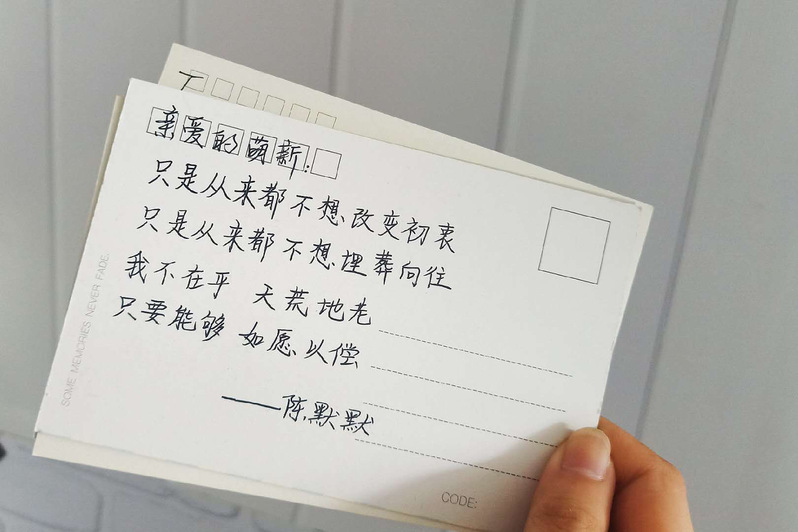 亲爱的萌新：
只是从来都不想改变初衷
只是从来都不想埋葬向往
我不在乎 天荒地老
只要能够 如愿以偿
——陈默默
SOME MEMORIES NEVER FADE.
CODE: